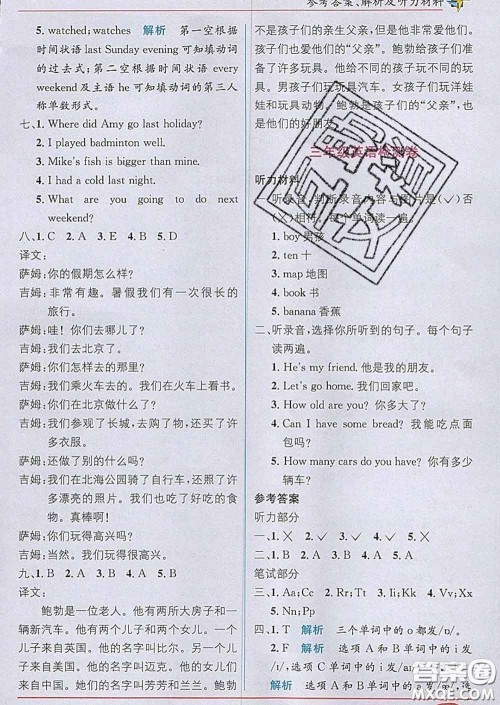 参考答案、解析及听力材料
5. watched; watches 解析 第一空根据
时间状语 last Sunday evening 可知填动词
的过去式；第二空根据时间状语 every
weekend 及主语 he 可知填动词的第三人
称单数形式。
七、1. Where did Amy go last holiday?
2. I played badminton well.
3. Mike's fish is bigger than mine.
4. I had a cold last night.
5. What are you going to do next
weekend?
八、1. C 2. A 3. E 4. B 5. D
译文：
萨姆：你的假期怎么样？
吉姆：非常有趣。暑假我们有一次很长的
旅行。
萨姆：哇！你们去哪儿了？
吉姆：我们去北京了。
萨姆：你们怎么去的那里？
吉姆：我们乘火车去的。我们在火车上看书。
萨姆：你们在北京做什么了？
吉姆：我们参观了长城，去购物了，还买了许
多衣服。
萨姆：还做了别的什么吗？
吉姆：我们在北海公园骑了自行车，还照了许
多漂亮的照片。我们也吃了好吃的食
物。真棒啊！
萨姆：你们玩得高兴吗？
吉姆：当然。我们玩得很高兴。
九、1. B 2. A 3. A 4. B 5. B
译文：
鲍勃是一位老人。他有两所大房子和一
辆新汽车。他有两个儿子和两个女儿。一个
儿子来自英国。他的名字叫比尔。另一个儿
子来自美国。他的名字叫迈克。他的女儿们
来自中国。她们的名字叫芳芳和兰兰。鲍勃
不是孩子们的亲生父亲，但是他很爱孩子们。
孩子们也爱他们的“父亲”。鲍勃给孩子们买
了许多玩具。他给不同的孩子玩不同的玩
具。男孩子们玩玩具汽车。女孩子们玩洋娃
娃和玩具动物。鲍勃是孩子们的“父亲”，也
是他们的好朋友。
三年级英语检测卷
听力材料
一、听录音，判断录音内容与图片是(√)否
(×)相符。每个单词读一遍。
1. boy 男孩
2. ten 十
3. map 地图
4. book 书
5. banana 香蕉
二、听录音，选择你所听到的句子。每个句子
读两遍。
1. He's my friend. 他是我的朋友。
2. Let's go home. 我们回家吧。
3. How old are you? 你多大了？
4. Can I have some biscuits? 我能吃点面
包吗？
5. How many cars do you have? 你有多少
辆车？
参考答案
听力部分
一、1. × 2. √ 3. √ 4. √ 5. ×
二、1. B 2. A 3. A 4. B 5. A
笔试部分
三、1. Aa; Cc 2. Rr; Tt 3. Ii; Kk 4. Pp; Qq
5. Nn; Pp
四、1. T 解析 三个单词中的 o 都发/ɒ/。
2. F 解析 选项 A 和 B 单词中的 i 发
/ɪ/，选项 C 单词中的 i 发/aɪ/
解析 选项 A 和 B 单词中的 a 发/æ/，选